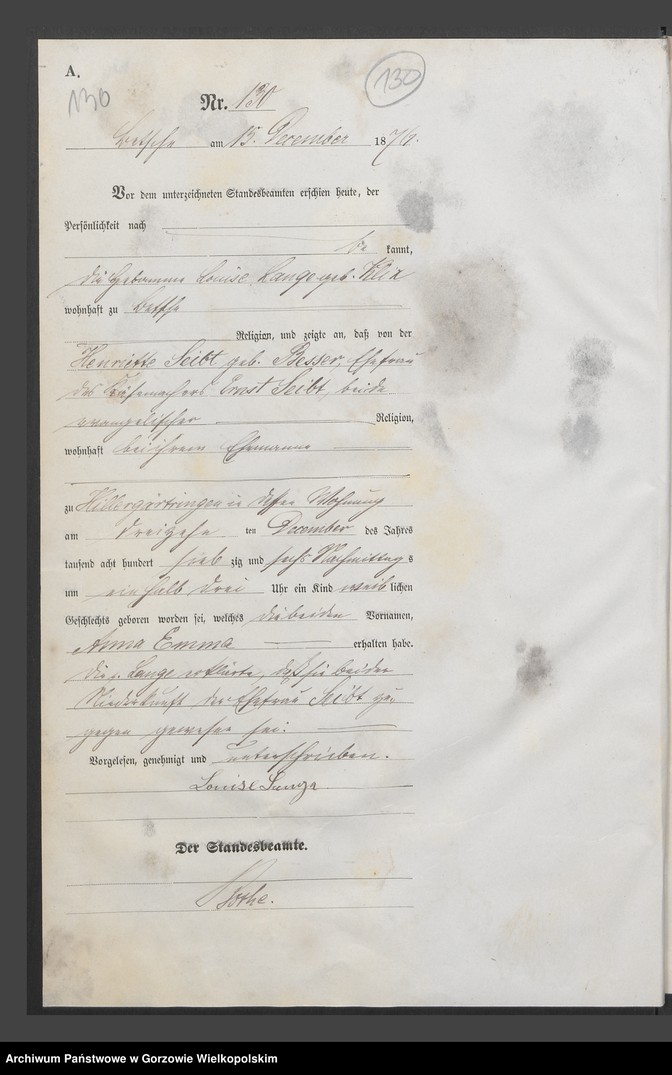 A.
130
130
Nr. 130
Betsche am 15. December 1876.
Vor dem unterzeichneten Standesbeamten erschien heute, der
Persönlichkeit nach
be kannt,
die Hebamme Louise Lange geb. Klix
wohnhaft zu Betsche
Religion, und zeigte an, daß von der
Henriette Seibt, geb. Besser, Ehefrau
des Ernst Seibt, beide
evangelischer Religion,
wohnhaft bei ihrem Ehemanne
zu in dessen Wohnung
am dreizehn ten December des Jahres
tausend acht hundert sieb zig und sechs Nachmittag s
um ein halb drei Uhr ein Kind weib lichen
Geschlechts geboren worden sei, welches die beiden Vornamen,
Anna Emma erhalten habe.
Die Lange erklärte, daß sie bei der
Niederkunft der Ehefrau Seibt zu-
gegen gewesen sei.
Vorgelesen, genehmigt und unterschrieben.
Louise Lange
Der Standesbeamte.
Archiwum Państwowe w Gorzowie Wielkopolskim